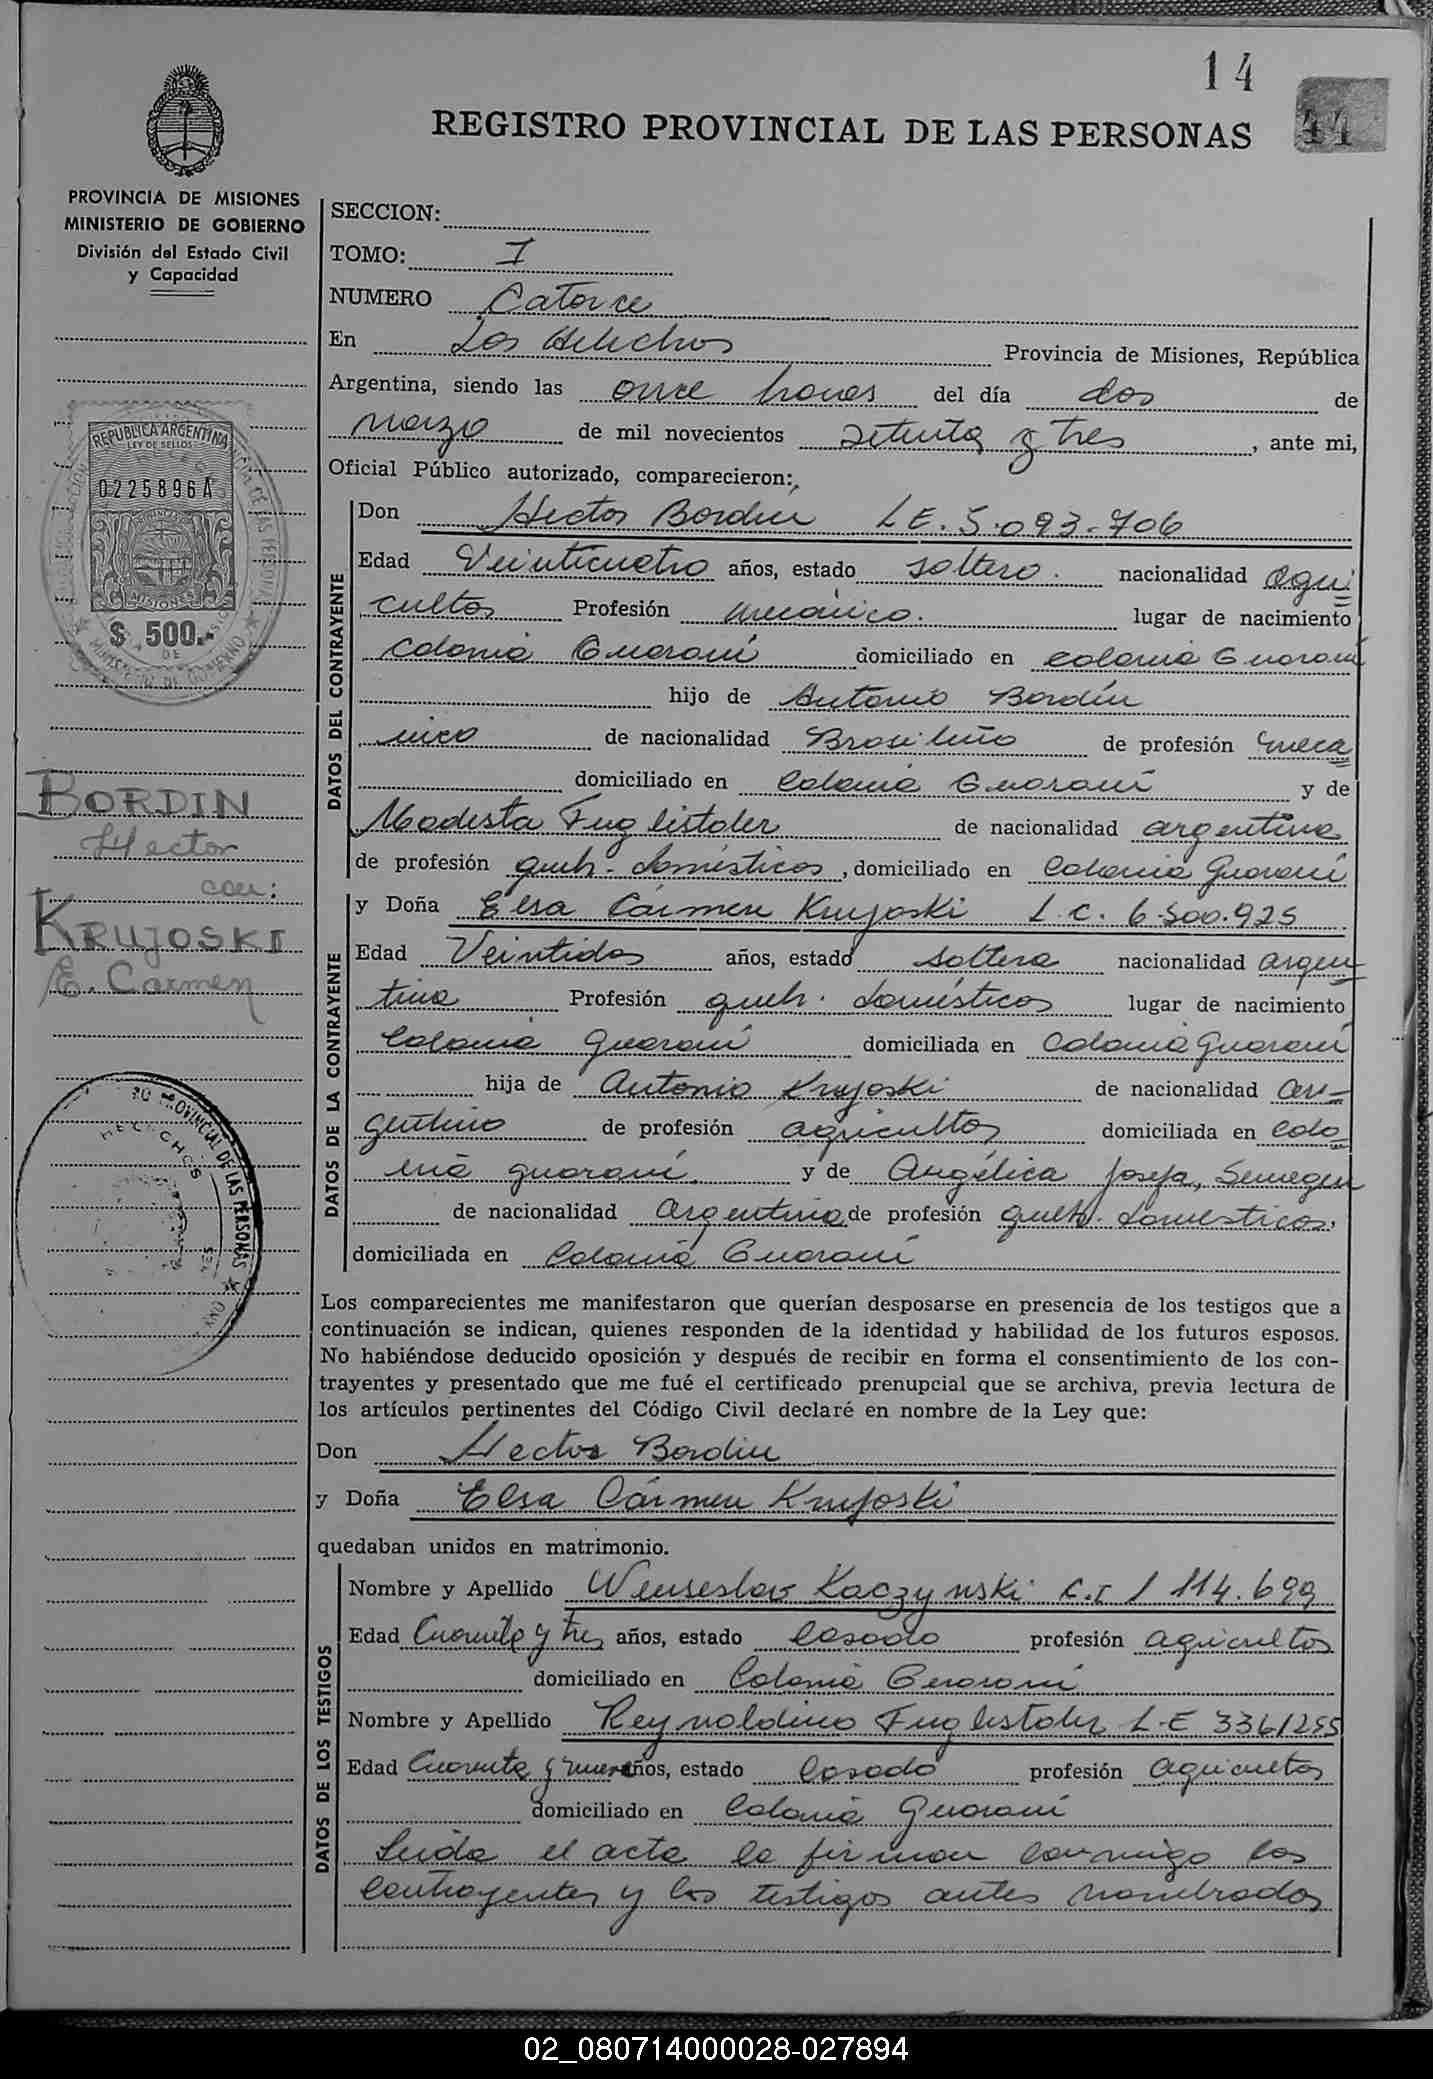 14
REGISTRO PROVINCIAL DE LAS PERSONAS
PROVINCIA DE MISIONES
MINISTERIO DE GOBIERNO
División del Estado Civil
y Capacidad
REPUBLICA ARGENTINA
LEY DE SELLOS
0225896A
MISIONES
$ 500.-
BORDIN
Hector
con:
KRUJOSKI
E. Carmen
RO PROVINCIAL DE LAS PERSONAS
SECCION:
TOMO: I
NUMERO Catorce
En Los Helechos Provincia de Misiones, República
Argentina, siendo las once horas del día dos de
marzo de mil novecientos setenta y tres, ante mi,
Oficial Público autorizado, comparecieron:
DATOS DEL CONTRAYENTE
Don Hector Bordin L E. 5.093-706
Edad Veinticuatro años, estado soltero. nacionalidad agri
cultor Profesión mecánico. lugar de nacimiento
colonia Guaraní domiciliado en colonia Guaraní
hijo de Antonio Bordín
nico de nacionalidad Brasileño de profesión meca
domiciliado en Colonia Guaraní y de
Modesta Fuglistaler de nacionalidad argentina
de profesión queh. domésticos, domiciliado en Colonia Guaraní
DATOS DE LA CONTRAYENTE
y Doña Elsa Cármen Krujoski L.C. 6.500.925
Edad Veintidos años, estado soltera nacionalidad argen
tina Profesión queh. domésticos lugar de nacimiento
Colonia Guaraní domiciliada en Colonia Guaraní
hija de Antonio Krujoski de nacionalidad ar-
gentino de profesión agricultor domiciliada en Colo
nia guaraní, y de Angélica Josefa, Semegen
de nacionalidad argentina de profesión queh. domesticos,
domiciliada en Colonia Guaraní
Los comparecientes me manifestaron que querían desposarse en presencia de los testigos que a
continuación se indican, quienes responden de la identidad y habilidad de los futuros esposos.
No habiéndose deducido oposición y después de recibir en forma el consentimiento de los con-
trayentes y presentado que me fué el certificado prenupcial que se archiva, previa lectura de
los artículos pertinentes del Código Civil declaré en nombre de la Ley que:
Don Hector Bordin
y Doña Elsa Cármen Krujoski
quedaban unidos en matrimonio.
DATOS DE LOS TESTIGOS
Nombre y Apellido Wenseslao Kaczynski C.I / 114.699
Edad Cuarenta y tres años, estado Casado profesión agricultor
domiciliado en Colonia Guaraní
Nombre y Apellido Reynoldino Fuglistaler L-E 3361255
Edad Cuarenta y nueve años, estado Casado profesión agricultor
domiciliado en Colonia Guaraní
Leida el acta la firman conmigo los
contrayentes y los testigos antes nombrados
02_080714000028-027894